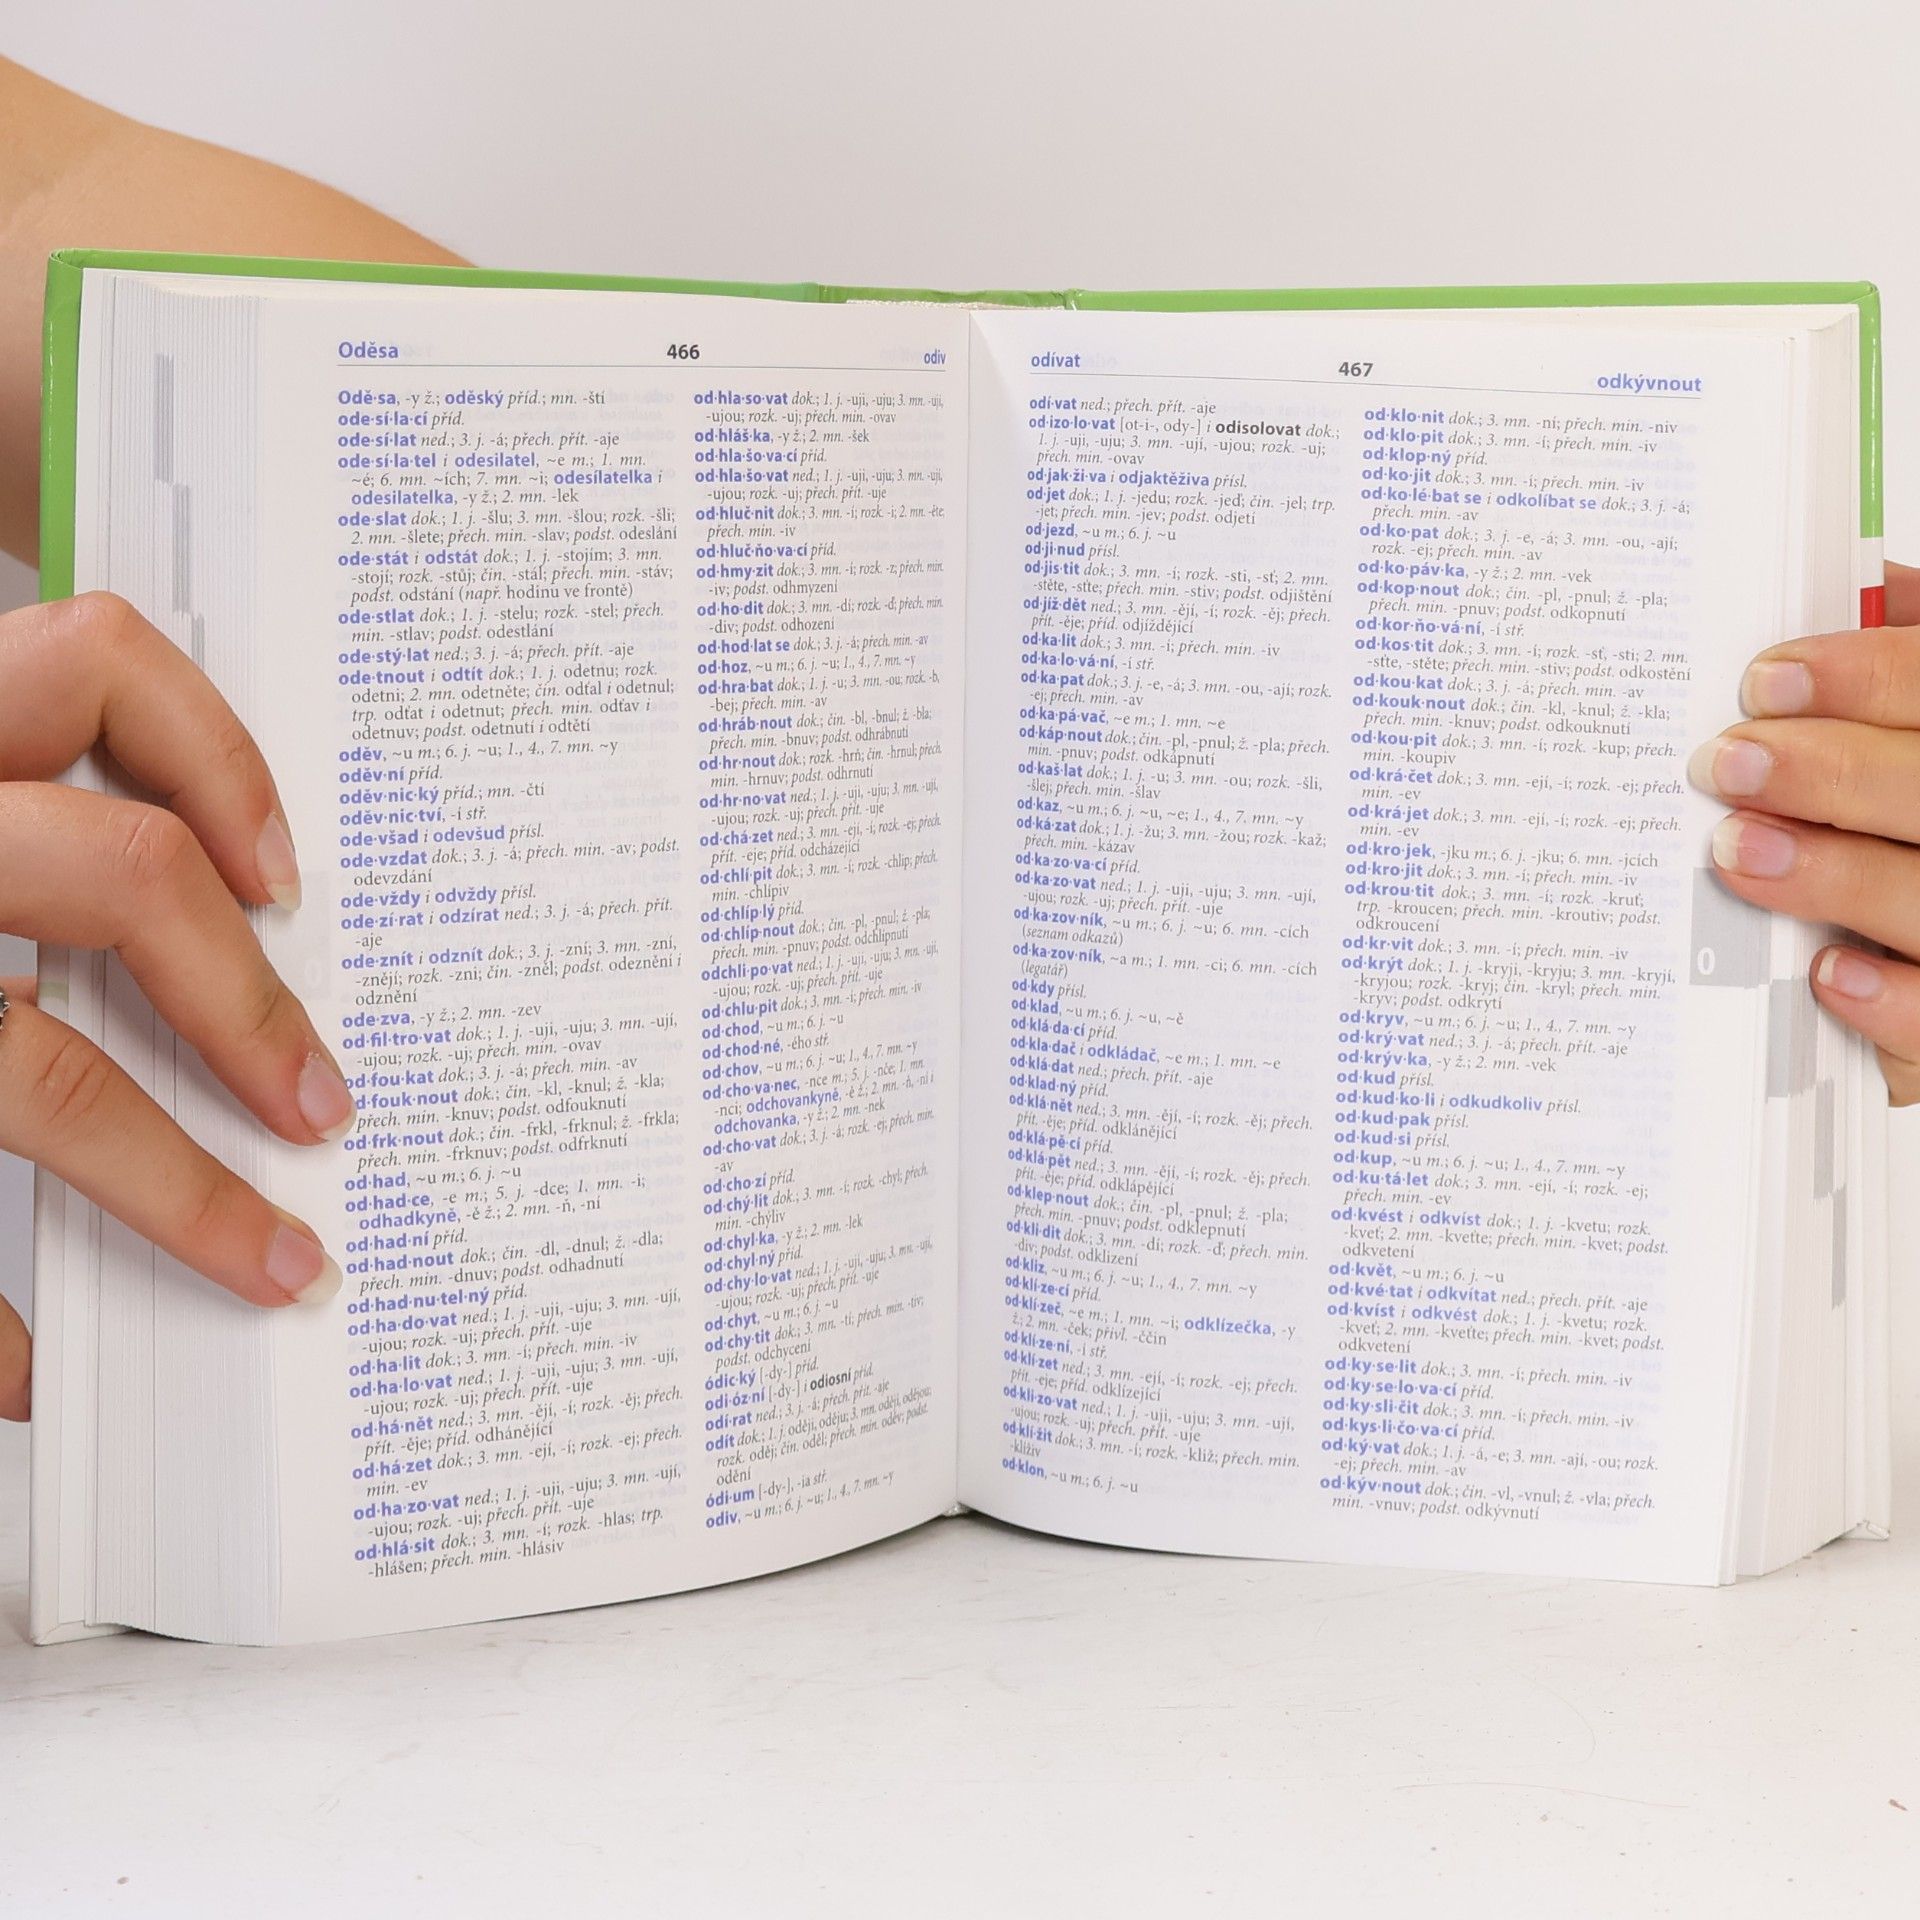 Oděsa 466 odiv
Odě·sa, -y ž.; oděský příd.; mn. -ští
ode·sí·la·cí příd.
ode·sí·lat ned.; 3. j. -á; přech. přít. -aje
ode·sí·la·tel i odesilatel, ~e m.; 1. mn.
~é; 6. mn. ~ích; 7. mn. ~i; odesílatelka i
odesilatelka, -y ž.; 2. mn. -lek
ode·slat dok.; 1. j. -šlu; 3. mn. -šlou; rozk. -šli;
2. mn. -šlete; přech. min. -slav; podst. odeslání
ode·stát i odstát dok.; 1. j. -stojím; 3. mn.
-stojí; rozk. -stůj; čin. -stál; přech. min. -stáv;
podst. odstání (např. hodinu ve frontě)
ode·stlat dok.; 1. j. -stelu; rozk. -stel; přech.
min. -stlav; podst. odestlání
ode·stý·lat ned.; 3. j. -á; přech. přít. -aje
ode·tnout i odtít dok.; 1. j. odetnu; rozk.
odetni; 2. mn. odetněte; čin. odťal i odetnul;
trp. odťat i odetnut; přech. min. odťav i
odetnuv; podst. odetnutí i odtětí
oděv, ~u m.; 6. j. ~u; 1., 4., 7. mn. ~y
oděv·ní příd.
oděv·nic·ký příd.; mn. -čtí
oděv·nic·tví, -í stř.
ode·všad i odevšud přísl.
ode·vzdat dok.; 3. j. -á; přech. min. -av; podst.
odevzdání
ode·vždy i odvždy přísl.
ode·zí·rat i odzírat ned.; 3. j. -á; přech. přít.
-aje
ode·znít i odznít dok.; 3. j. -zní; 3. mn. -zní,
-znějí; rozk. -zni; čin. -zněl; podst. odeznění i
odznění
ode·zva, -y ž.; 2. mn. -zev
od·fil·tro·vat dok.; 1. j. -uji, -uju; 3. mn. -ují,
-ujou; rozk. -uj; přech. min. -ovav
od·fou·kat dok.; 3. j. -á; přech. min. -av
d·fouk·nout dok.; čin. -kl, -knul; ž. -kla;
přech. min. -knuv; podst. odfouknutí
od·frk·nout dok.; čin. -frkl, -frknul; ž. -frkla;
přech. min. -frknuv; podst. odfrknutí
od·had, ~u m.; 6. j. ~u
od·had·ce, -e m.; 5. j. -dce; 1. mn. -i;
odhadkyně, -ě ž.; 2. mn. -ň, -ní
od·had·ní příd.
od·had·nout dok.; čin. -dl, -dnul; ž. -dla;
přech. min. -dnuv; podst. odhadnutí
od·had·nu·tel·ný příd.
od·ha·do·vat ned.; 1. j. -uji, -uju; 3. mn. -ují,
-ujou; rozk. -uj; přech. přít. -uje
od·ha·lit dok.; 3. mn. -í; přech. min. -iv
od·ha·lo·vat ned.; 1. j. -uji, -uju; 3. mn. -ují,
-ujou; rozk. -uj; přech. přít. -uje
od·há·nět ned.; 3. mn. -ějí, -í; rozk. -ěj; přech.
přít. -ěje; příd. odhánějící
od·há·zet dok.; 3. mn. -ejí, -í; rozk. -ej; přech.
min. -ev
od·ha·zo·vat ned.; 1. j. -uji, -uju; 3. mn. -ují,
-ujou; rozk. -uj; přech. přít. -uje
od·hlá·sit dok.; 3. mn. -í; rozk. -hlas; trp.
-hlášen; přech. min. -hlásiv
od·hla·so·vat dok.; 1. j. -uji, -uju; 3. mn. -ují,
-ujou; rozk. -uj; přech. min. -ovav
od·hláš·ka, -y ž.; 2. mn. -šek
od·hla·šo·va·cí příd.
od·hla·šo·vat ned.; 1. j. -uji, -uju; 3. mn. -ují,
-ujou; rozk. -uj; přech. přít. -uje
od·hluč·nit dok.; 3. mn. -í; rozk. -i; 2. mn. -ěte;
přech. min. -iv
od·hluč·ňo·va·cí příd.
od·hmy·zit dok.; 3. mn. -í; rozk. -z; přech. min.
-iv; podst. odhmyzení
od·ho·dit dok.; 3. mn. -dí; rozk. -ď; přech. min.
-div; podst. odhození
od·hod·lat se dok.; 3. j. -á; přech. min. -av
od·hoz, ~u m.; 6. j. ~u; 1., 4., 7. mn. ~y
od·hra·bat dok.; 1. j. -u; 3. mn. -ou; rozk. -b,
-bej; přech. min. -av
od·hráb·nout dok.; čin. -bl, -bnul; ž. -bla;
přech. min. -bnuv; podst. odhrábnutí
od·hr·nout dok.; rozk. -hrň; čin. -hrnul; přech.
min. -hrnuv; podst. odhrnutí
od·hr·no·vat ned.; 1. j. -uji, -uju; 3. mn. -ují,
-ujou; rozk. -uj; přech. přít. -uje
od·chá·zet ned.; 3. mn. -ejí, -í; rozk. -ej; přech.
přít. -eje; příd. odcházející
od·chlí·pit dok.; 3. mn. -í; rozk. -chlip; přech.
min. -chlípiv
od·chlíp·lý příd.
od·chlíp·nout dok.; čin. -pl, -pnul; ž. -pla;
přech. min. -pnuv; podst. odchlípnutí
odchli·po·vat ned.; 1. j. -uji, -uju; 3. mn. -ují,
-ujou; rozk. -uj; přech. přít. -uje
od·chlu·pit dok.; 3. mn. -í; přech. min. -iv
od·chod, ~u m.; 6. j. ~u
od·chod·né, -ého stř.
od·chov, ~u m.; 6. j. ~u; 1., 4., 7. mn. ~y
od·cho·va·nec, -nce m.; 5. j. -nče; 1. mn.
-nci; odchovankyně, -ě ž.; 2. mn. -ň, -ní i
odchovanka, -y ž.; 2. mn. -nek
od·cho·vat dok.; 3. j. -á; rozk. -ej; přech. min.
-av
od·cho·zí příd.
od·chý·lit dok.; 3. mn. -í; rozk. -chyl; přech.
min. -chýliv
od·chyl·ka, -y ž.; 2. mn. -lek
od·chyl·ný příd.
od·chy·lo·vat ned.; 1. j. -uji, -uju; 3. mn. -ují,
-ujou; rozk. -uj; přech. přít. -uje
od·chyt, ~u m.; 6. j. ~u
od·chy·tit dok.; 3. mn. -tí; přech. min. -tiv;
podst. odchycení
ódic·ký [-dy-] příd.
odi·óz·ní [-dy-] i odiosní příd.
odí·rat ned.; 3. j. -á; přech. přít. -aje
odít dok.; 1. j. oději, oděju; 3. mn. odějí, odějou;
rozk. oděj; čin. oděl; přech. min. oděv; podst.
odění
ódi·um [-dy-], -ia stř.
odiv, ~u m.; 6. j. ~u; 1., 4., 7. mn. ~y
odívat 467 odkývnout
odí·vat ned.; přech. přít. -aje
od·izo·lo·vat [ot-i-, ody-] i odisolovat dok.;
1. j. -uji, -uju; 3. mn. -ují, -ujou; rozk. -uj;
přech. min. -ovav
od·jak·ži·va i odjaktěživa přísl.
od·jet dok.; 1. j. -jedu; rozk. -jeď; čin. -jel; trp.
-jet; přech. min. -jev; podst. odjetí
od·jezd, ~u m.; 6. j. ~u
od·ji·nud přísl.
od·jis·tit dok.; 3. mn. -í; rozk. -sti, -sť; 2. mn.
-stěte, -sťte; přech. min. -stiv; podst. odjištění
od·jíž·dět ned.; 3. mn. -ějí, -í; rozk. -ěj; přech.
přít. -ěje; příd. odjíždějící
od·ka·lit dok.; 3. mn. -í; přech. min. -iv
od·ka·lo·vá·ní, -í stř.
od·ka·pat dok.; 3. j. -e, -á; 3. mn. -ou, -ají; rozk.
-ej; přech. min. -av
od·ka·pá·vač, ~e m.; 1. mn. ~e
od·káp·nout dok.; čin. -pl, -pnul; ž. -pla; přech.
min. -pnuv; podst. odkápnutí
od·kaš·lat dok.; 1. j. -u; 3. mn. -ou; rozk. -šli,
-šlej; přech. min. -šlav
od·kaz, ~u m.; 6. j. ~u, ~e; 1., 4., 7. mn. ~y
od·ká·zat dok.; 1. j. -žu; 3. mn. -žou; rozk. -kaž;
přech. min. -kázav
od·ka·zo·va·cí příd.
od·ka·zo·vat ned.; 1. j. -uji, -uju; 3. mn. -ují,
-ujou; rozk. -uj; přech. přít. -uje
od·ka·zov·ník, ~u m.; 6. j. ~u; 6. mn. -cích
(seznam odkazů)
od·ka·zov·ník, ~a m.; 1. mn. -ci; 6. mn. -cích
(legatář)
od·kdy přísl.
od·klad, ~u m.; 6. j. ~u, ~ě
od·klá·da·cí příd.
od·kla·dač i odkládač, ~e m.; 1. mn. ~e
od·klá·dat ned.; přech. přít. -aje
od·klad·ný příd.
od·klá·nět ned.; 3. mn. -ějí, -í; rozk. -ěj; přech.
přít. -ěje; příd. odklánějící
od·klá·pě·cí příd.
od·klá·pět ned.; 3. mn. -ějí, -í; rozk. -ěj; přech.
přít. -ěje; příd. odklápějící
od·klep·nout dok.; čin. -pl, -pnul; ž. -pla;
přech. min. -pnuv; podst. odklepnutí
od·kli·dit dok.; 3. mn. -dí; rozk. -ď; přech. min.
-div; podst. odklizení
od·kliz, ~u m.; 6. j. ~u; 1., 4., 7. mn. ~y
od·klí·ze·cí příd.
od·klí·zeč, ~e m.; 1. mn. ~i; odklízečka, -y
ž.; 2. mn. -ček; přivl. -ččin
od·klí·ze·ní, -í stř.
od·klí·zet ned.; 3. mn. -ejí, -í; rozk. -ej; přech.
přít. -eje; příd. odklízející
od·kli·zo·vat ned.; 1. j. -uji, -uju; 3. mn. -ují,
-ujou; rozk. -uj; přech. přít. -uje
od·klí·žit dok.; 3. mn. -í; rozk. -kliž; přech. min.
-klíživ
od·klon, ~u m.; 6. j. ~u
od·klo·nit dok.; 3. mn. -ní; přech. min. -niv
od·klo·pit dok.; 3. mn. -í; přech. min. -iv
od·klop·ný příd.
od·ko·jit dok.; 3. mn. -í; přech. min. -iv
od·ko·lé·bat se i odkolíbat se dok.; 3. j. -á;
přech. min. -av
od·ko·pat dok.; 3. j. -e, -á; 3. mn. -ou, -ají;
rozk. -ej; přech. min. -av
od·ko·páv·ka, -y ž.; 2. mn. -vek
od·kop·nout dok.; čin. -pl, -pnul; ž. -pla;
přech. min. -pnuv; podst. odkopnutí
od·kor·ňo·vá·ní, -í stř.
od·kos·tit dok.; 3. mn. -í; rozk. -sť, -sti; 2. mn.
-sťte, -stěte; přech. min. -stiv; podst. odkostění
od·kou·kat dok.; 3. j. -á; přech. min. -av
od·kouk·nout dok.; čin. -kl, -knul; ž. -kla;
přech. min. -knuv; podst. odkouknutí
od·kou·pit dok.; 3. mn. -í; rozk. -kup; přech.
min. -koupiv
od·krá·čet dok.; 3. mn. -ejí, -í; rozk. -ej; přech.
min. -ev
od·krá·jet dok.; 3. mn. -ejí, -í; rozk. -ej; přech.
min. -ev
od·kro·jek, -jku m.; 6. j. -jku; 6. mn. -jcích
od·kro·jit dok.; 3. mn. -í; přech. min. -iv
od·krou·tit dok.; 3. mn. -í; rozk. -kruť;
trp. -kroucen; přech. min. -kroutiv; podst.
odkroucení
od·kr·vit dok.; 3. mn. -í; přech. min. -iv
od·krýt dok.; 1. j. -kryji, -kryju; 3. mn. -kryjí,
-kryjou; rozk. -kryj; čin. -kryl; přech. min.
-kryv; podst. odkrytí
od·kryv, ~u m.; 6. j. ~u; 1., 4., 7. mn. ~y
od·krý·vat ned.; 3. j. -á; přech. přít. -aje
od·krýv·ka, -y ž.; 2. mn. -vek
od·kud přísl.
od·kud·ko·li i odkudkoliv přísl.
od·kud·pak přísl.
od·kud·si přísl.
od·kup, ~u m.; 6. j. ~u; 1., 4., 7. mn. ~y
od·ku·tá·let dok.; 3. mn. -ejí, -í; rozk. -ej;
přech. min. -ev
od·kvést i odkvíst dok.; 1. j. -kvetu; rozk.
-kveť; 2. mn. -kveťte; přech. min. -kvet; podst.
odkvetení
od·květ, ~u m.; 6. j. ~u
od·kvé·tat i odkvítat ned.; přech. přít. -aje
od·kvíst i odkvést dok.; 1. j. -kvetu; rozk.
-kveť; 2. mn. -kveťte; přech. min. -kvet; podst.
odkvetení
od·ky·se·lit dok.; 3. mn. -í; přech. min. -iv
od·ky·se·lo·va·cí příd.
od·ky·sli·čit dok.; 3. mn. -í; přech. min. -iv
od·kys·li·čo·va·cí příd.
od·ký·vat dok.; 1. j. -á, -e; 3. mn. -ají, -ou; rozk.
-ej; přech. min. -av
od·kýv·nout dok.; čin. -vl, -vnul; ž. -vla; přech.
min. -vnuv; podst. odkývnutí
O